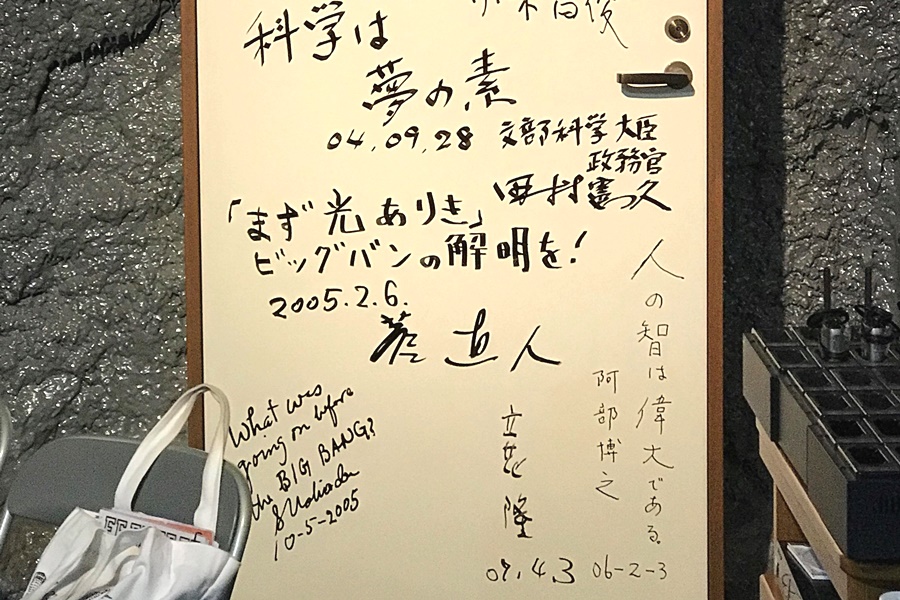 科学は
夢の素
04.09.28 文部科学大臣
政務官
田村憲久
「まず光ありき」
ビッグバンの解明を！
2005.2.6.
菅直人
What was
going on before
the BIG BANG?
10-5-2005
立花隆
07.4.3
人の智は偉大である。
阿部博之
06-2-3